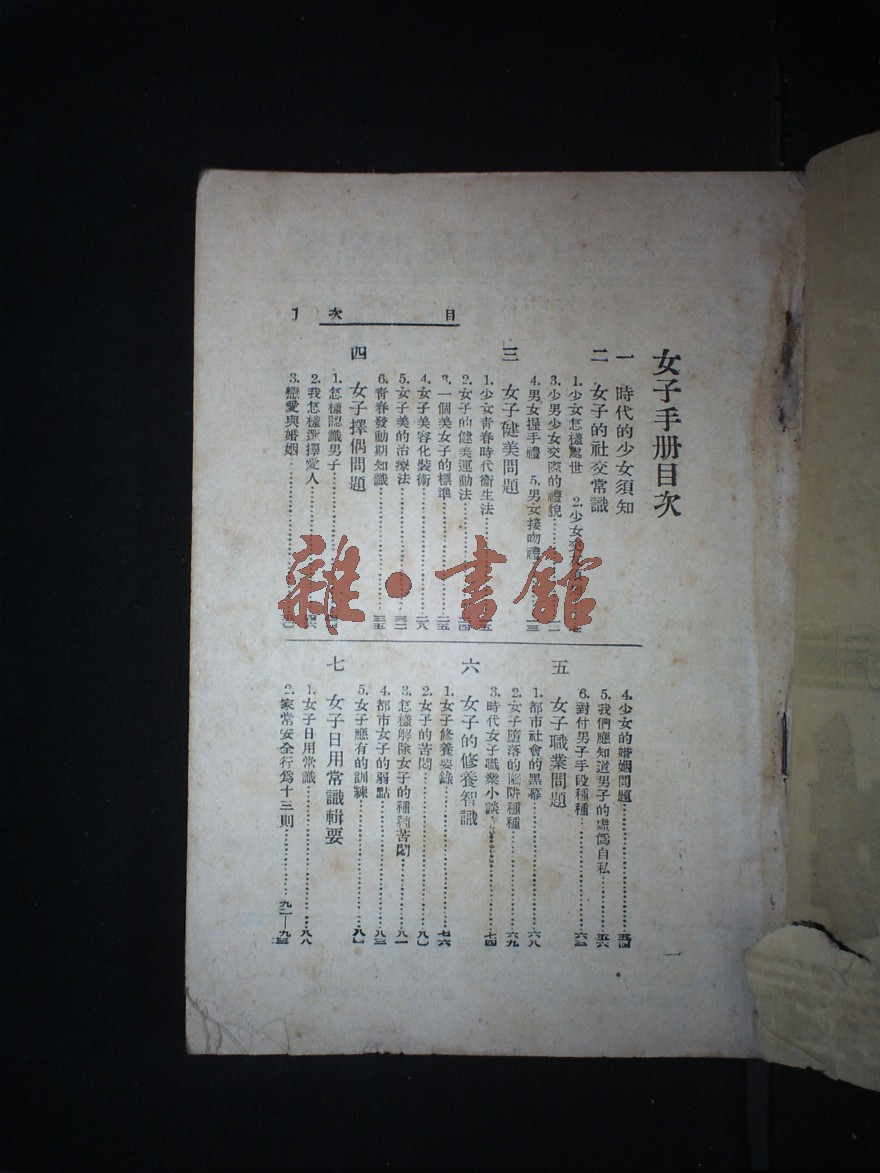 目次
女子手册目次
一 時代的少女須知
二 女子的社交常識
1. 少女怎樣處世 2. 少女交
3. 少男少女交際的禮貌
4. 男女握手禮 5. 男女接吻禮
三 女子健美問題
1. 少女青春時代衛生法
2. 女子的健美運動法
3. 一個美女子的標準……二五
4. 女子美容化裝術……二八
5. 女子美的治療法……三二
6. 青春發動期知識……三五
四 女子擇偶問題
1. 怎樣認識男子
2. 我怎樣選擇愛人
3. 戀愛與婚姻
4. 少女的婚姻問題……五四
5. 我們應知道男子的虛僞自私……五六
6. 對付男子手段種種……六三
五 女子職業問題
1. 都市社會的黑幕……六八
2. 女子墮落的陷阱種種……六九
3. 時代女子職業小談……七四
六 女子的修養智識
1. 女子修養要錄……七六
2. 女子的苦悶……八〇
3. 怎樣解除女子的種種苦悶……八一
4. 都市女子的弱點……八三
5. 女子應有的訓練……八
七 女子日用常識輯要
1. 女子日用常識……八八
2. 家常安全行爲十三則……九二—九三
一
雜·書館